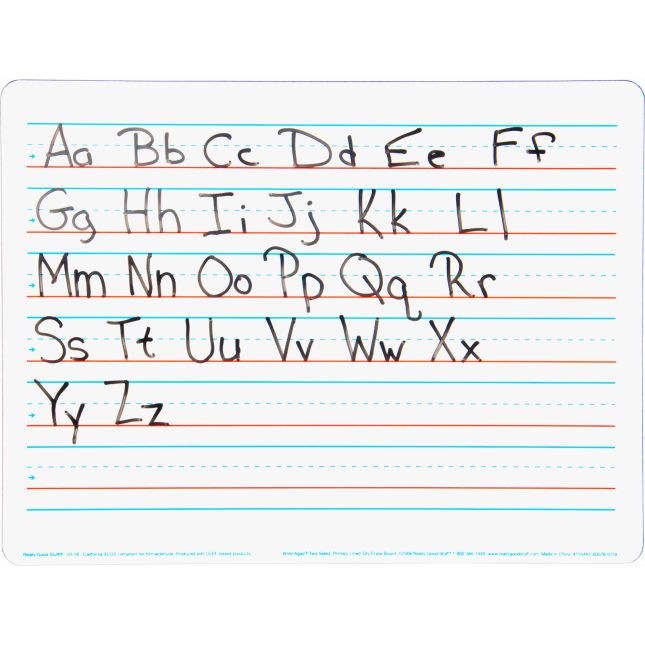 Aa Bb Cc Dd Ee Ff
Gg Hh Ii Jj Kk Ll
Mm Nn Oo Pp Qq Rr
Ss Tt Uu Vv Ww Xx
Yy Zz
Really Good Stuff® California 93120 compliant for formaldehyde Produced with ULEF based products Write Again® Two Sided, Primary Lined, Dry Erase Board Really Good Stuff™ www.reallygoodstuff.com Made in China